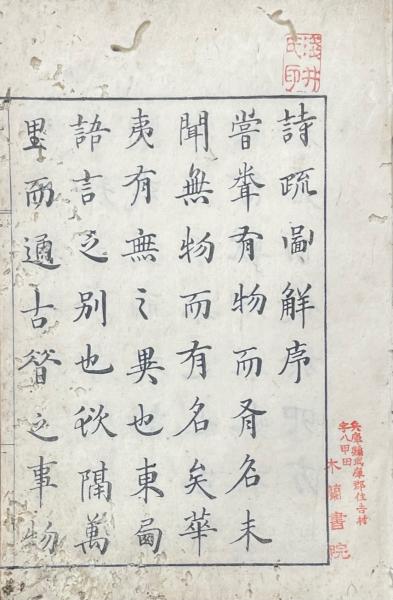 淺井
氏印
詩疏啚解序
嘗有物而名未
聞無物而有名矣華
夷有無之異也東
語言之別也欲隔萬
里而通古之事物
兵庫縣武庫郡住吉村
字八甲田
木蘭書院